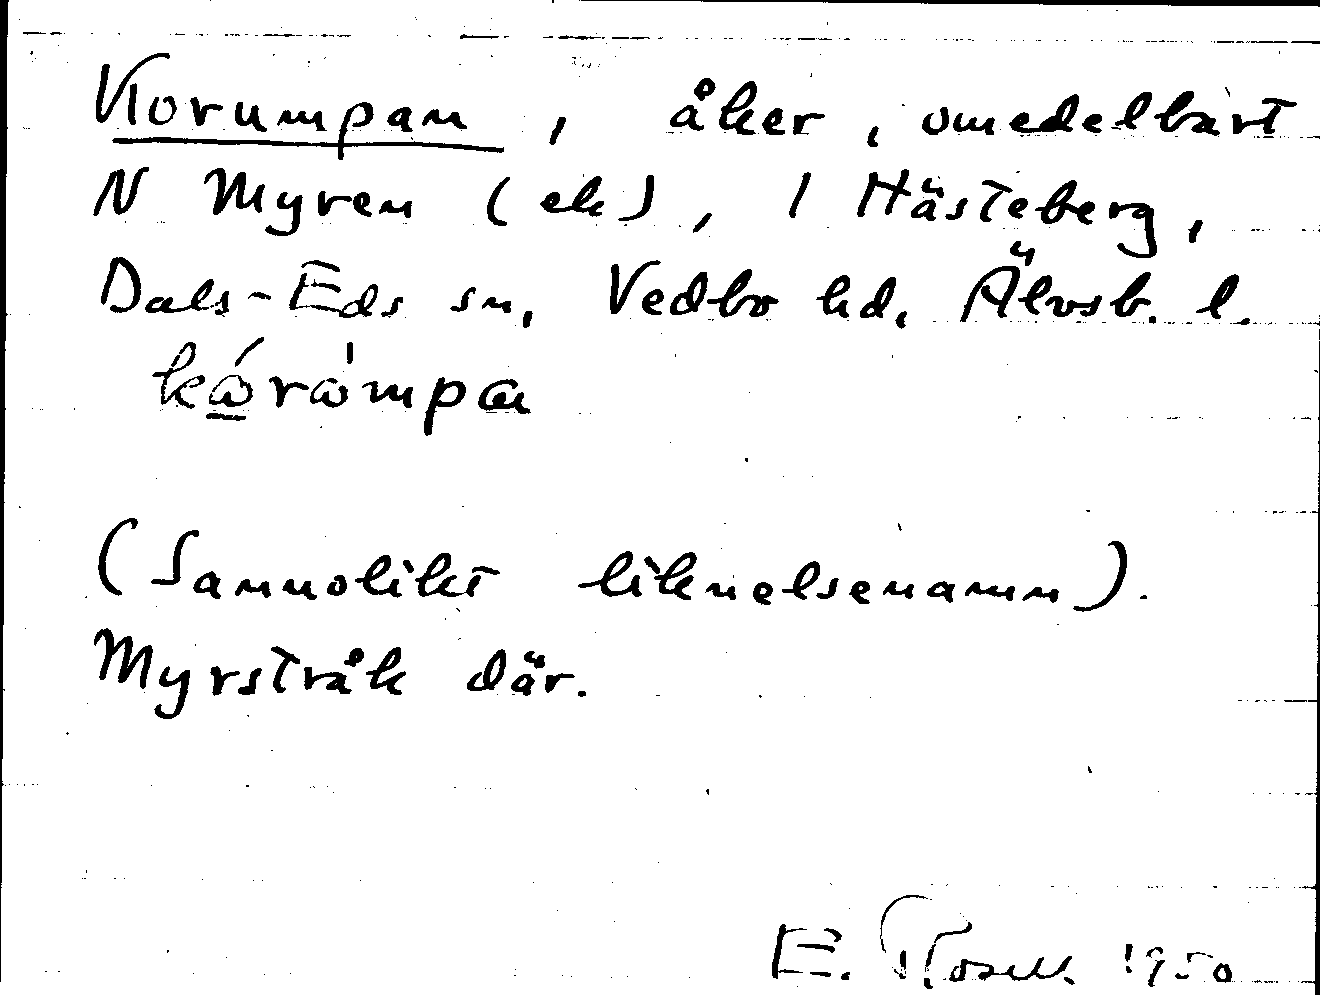 Korumpan, åker, omedelbart
N Myren (ek), 1 Hästeberg,
Dals-Eds sn, Vedbo hd, Älvsb. l.
(Sannolikt liknelsenamn).
Myrstråk där.
E. Rosell 1950